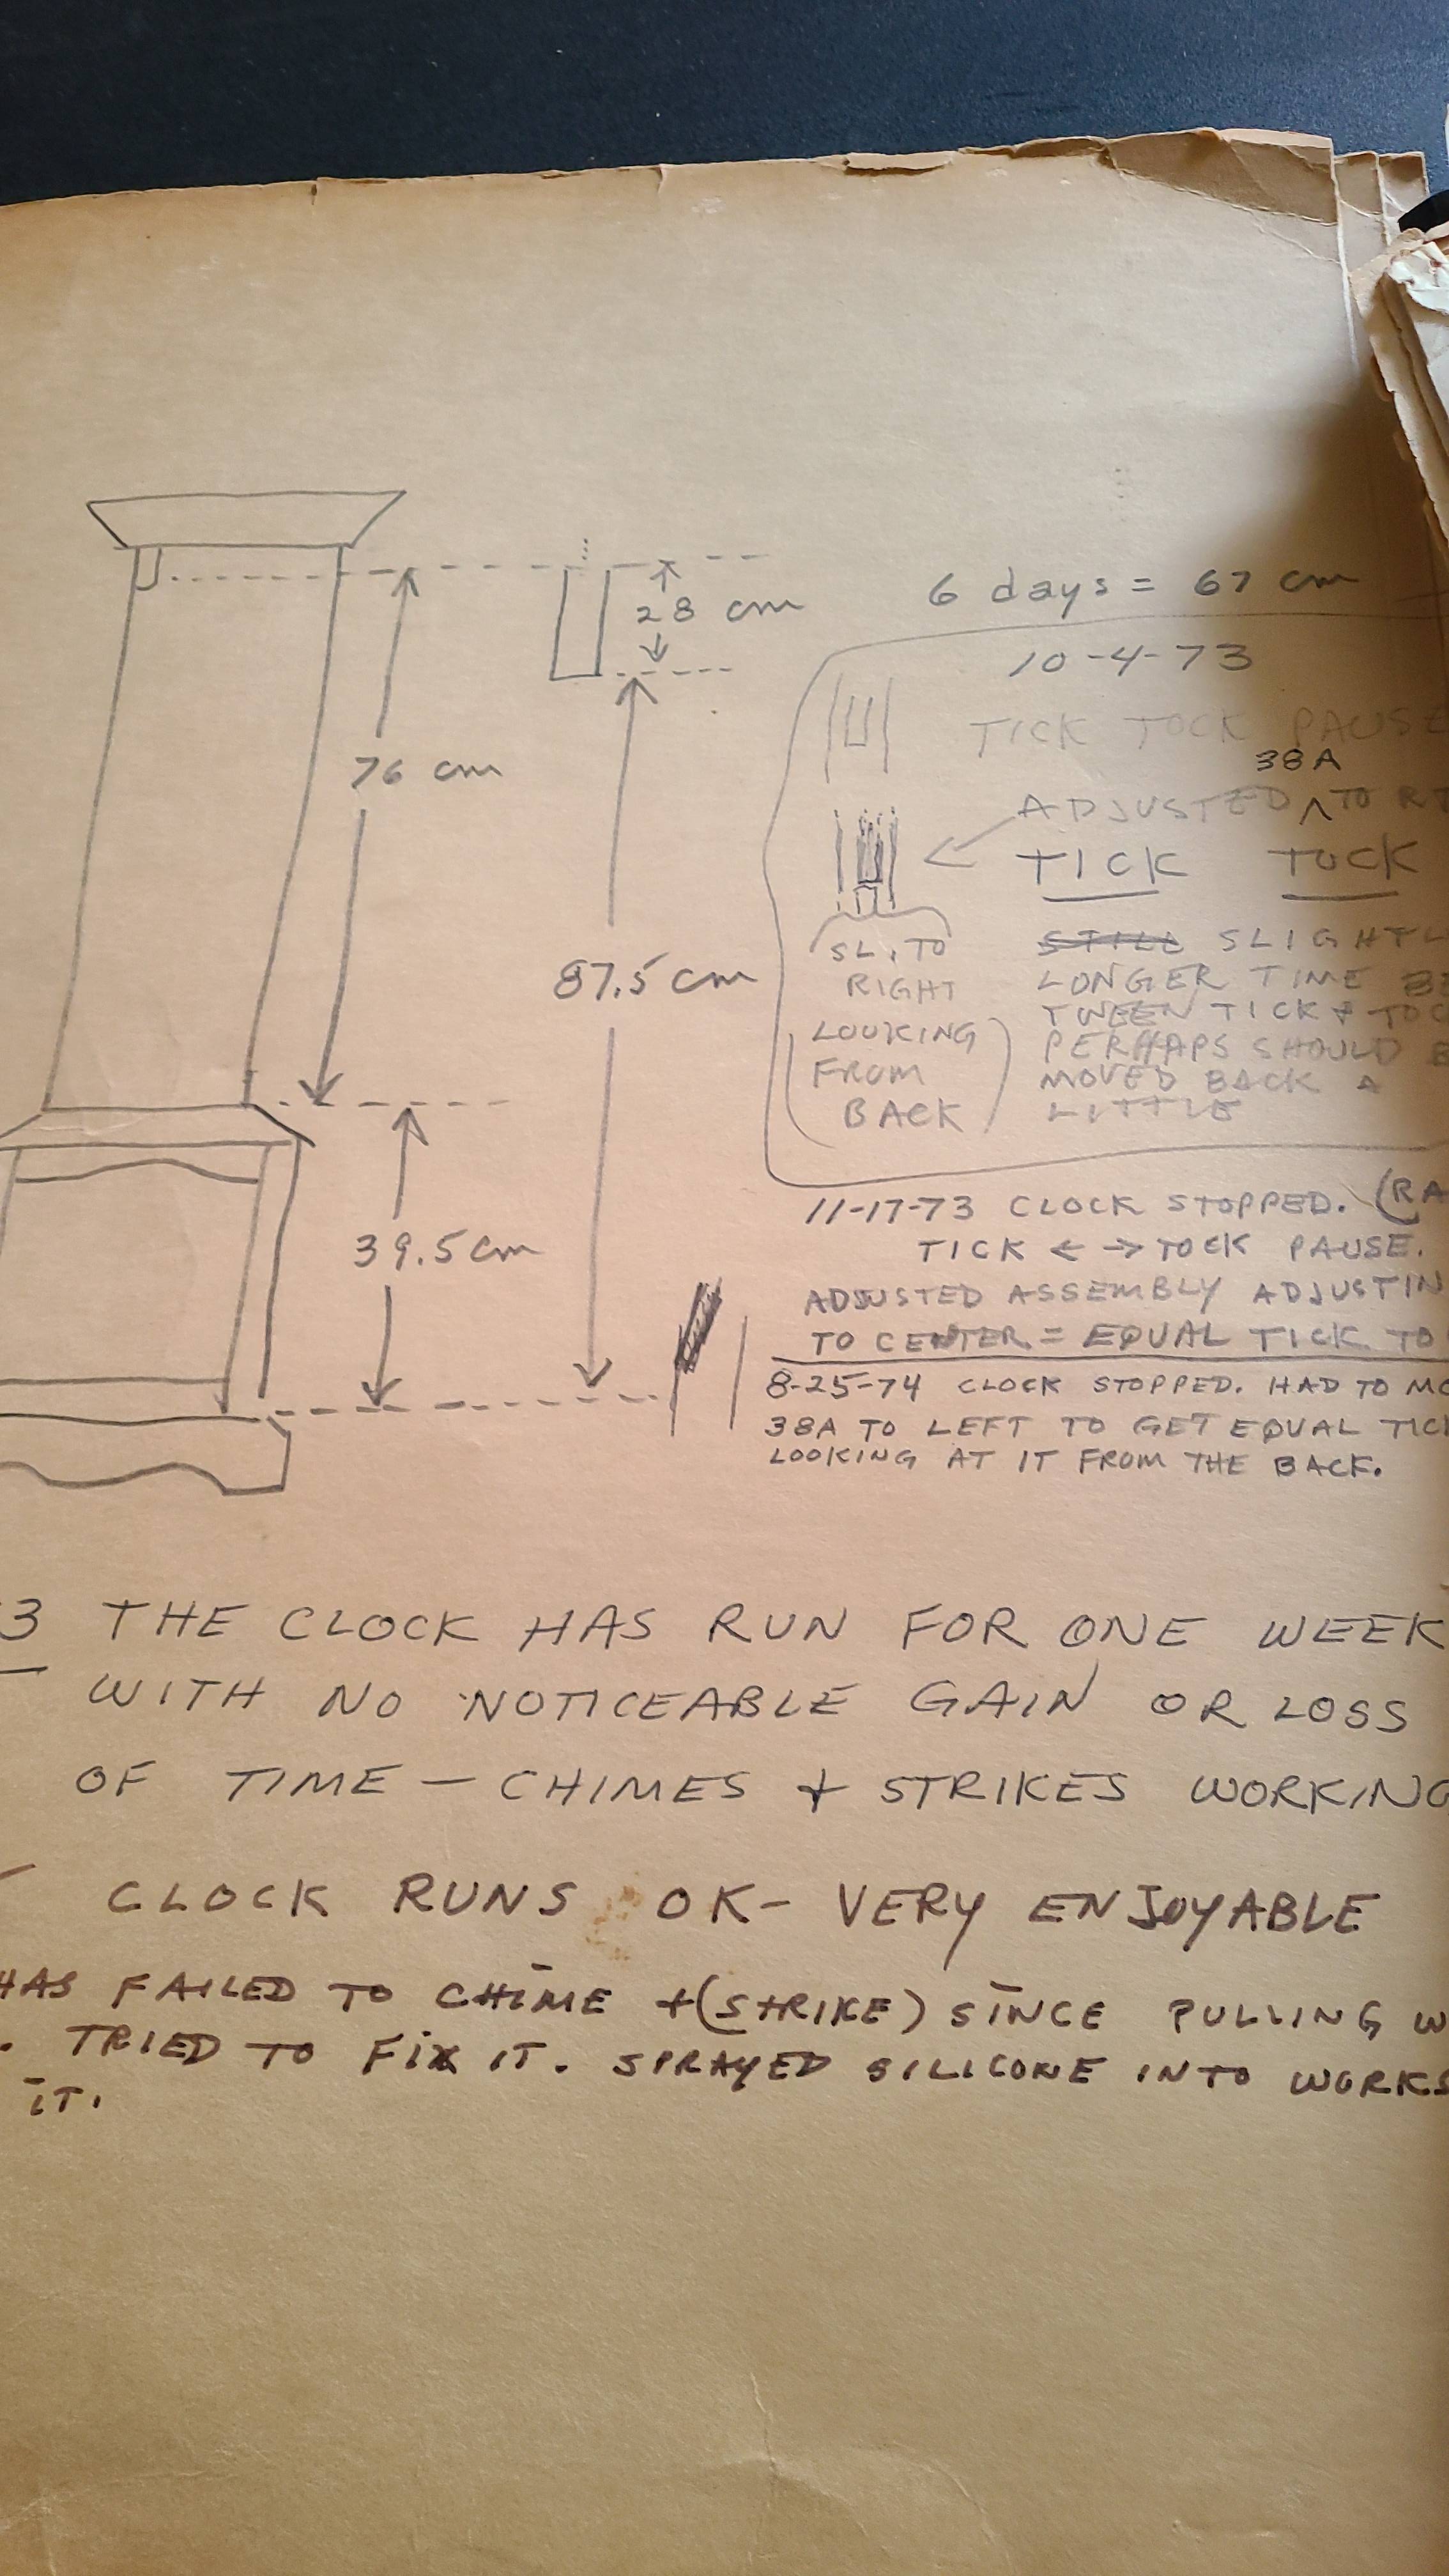 28 cm
76 cm
87.5 cm
39.5 cm
6 days = 67 cm
10-4-73
TICK TOCK PAUSE
38A
ADJUSTED ^ TO
TICK TOCK
SL. TO
RIGHT
(LOOKING
FROM
BACK)
STILL SLIGHTL
LONGER TIME BE
TWEEN TICK & TOC
PERHAPS SHOULD B
MOVED BACK A
LITTLE
11-17-73 CLOCK STOPPED. (RA
TICK ← → TOCK PAUSE.
ADJUSTED ASSEMBLY ADJUSTIN
TO CENTER = EQUAL TICK TO
8-25-74 CLOCK STOPPED. HAD TO MO
38A TO LEFT TO GET EQUAL TICK
LOOKING AT IT FROM THE BACK.
3 THE CLOCK HAS RUN FOR ONE WEEK
WITH NO NOTICEABLE GAIN OR LOSS
OF TIME — CHIMES + STRIKES WORKING
CLOCK RUNS OK - VERY ENJOYABLE
HAS FAILED TO CHIME + (STRIKE) SINCE PULLING W
. TRIED TO FIX IT. SPRAYED SILICONE INTO WORKS
IT.